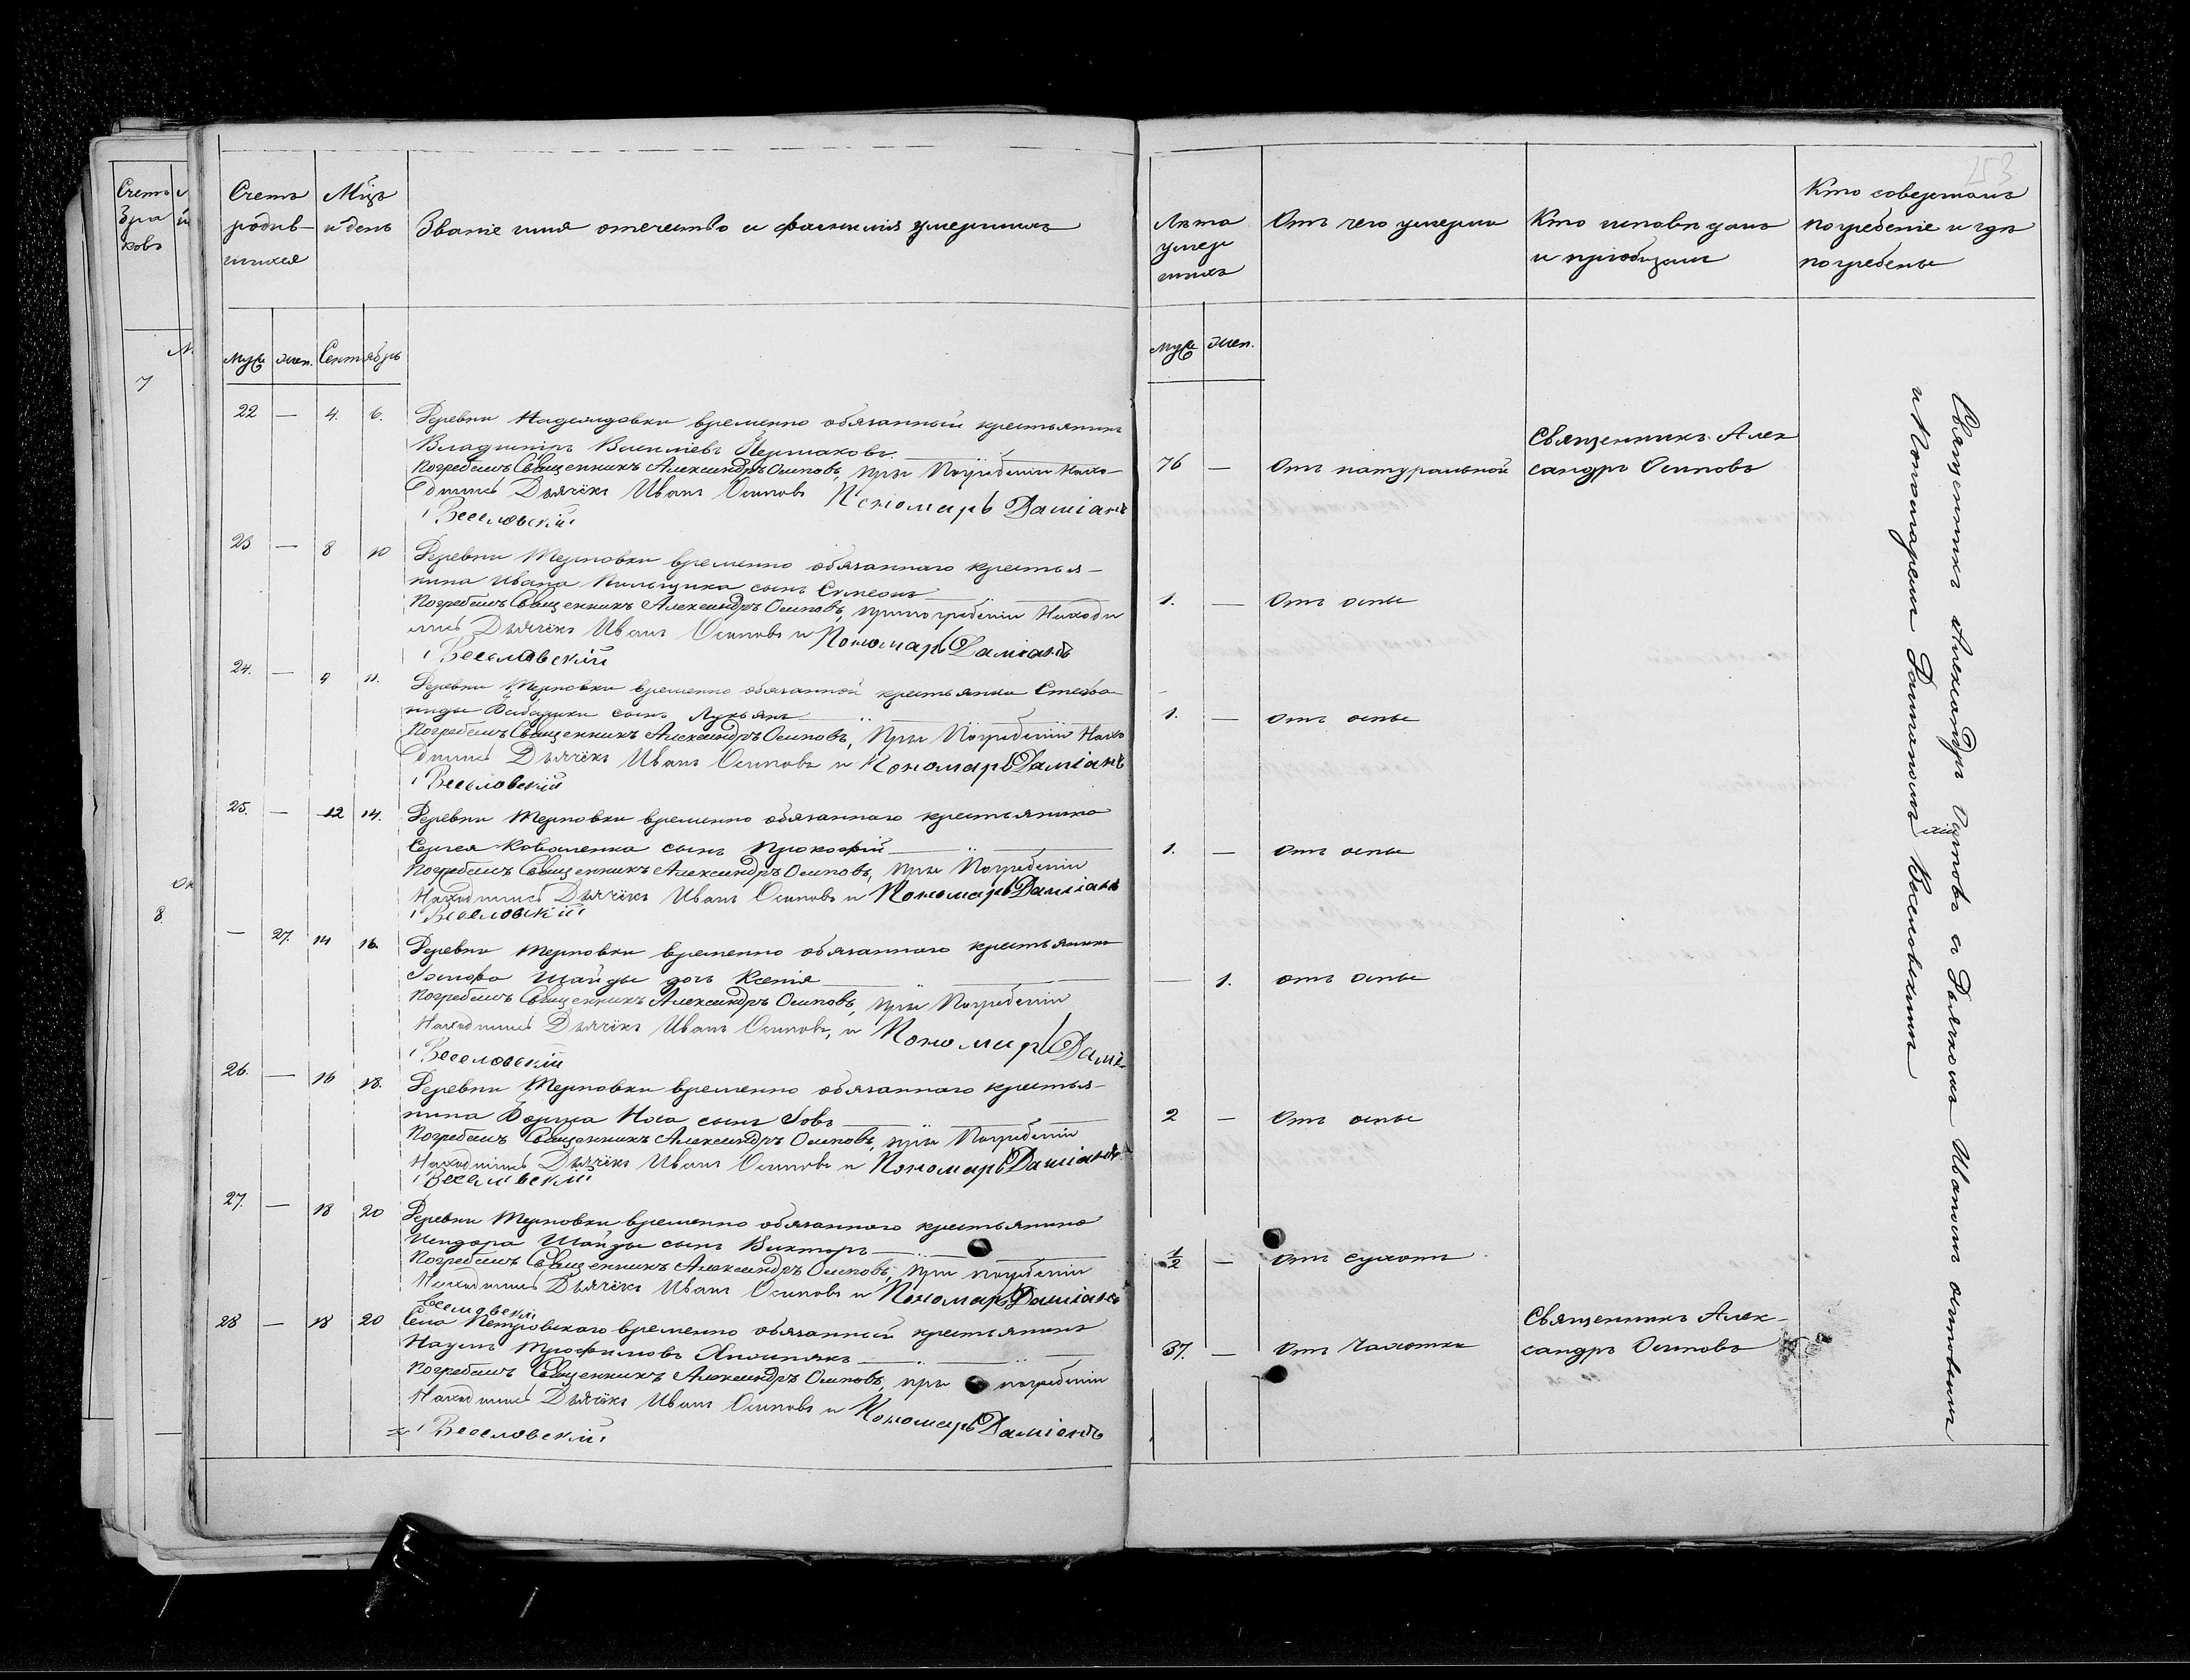 Счетъ
бра
ковъ
7
8.
Счетъ
родив-
шихся
Мцъ
и день
Званіе имя отечество и фамилія умершихъ
Муж
жен.
Сентябрь
22 — 4. 6. Деревни Надеждовки временно обязанный крестьянинъ
Погребалъ Священникъ Александръ Осиповъ, при Погребеніи Нахо-
дились Дьячекъ Иванъ Осиповъ Пономарь Даміанъ
Веселовскій
23 — 8 10 Деревни Терновки временно обязаннаго крестья-
нина Ивана Пильщика сынъ Симеонъ
Погребалъ Священникъ Александръ Осиповъ, при погребеніи Находи
лись Дьячекъ Иванъ Осиповъ и Пономарь Даміанъ
Веселовскій
24. — 9 11. Деревни Терновки временно обязанной крестьянки Стефа
ниды сынъ Лукьянъ
Погребалъ Священникъ Александръ Осиповъ, при Погребеніи Нахо
дились Дьячекъ Иванъ Осиповъ и Пономарь Даміанъ
Веселовскій
25. — 12 14. Деревни Терновки временно обязаннаго крестьянина
Сергея Коваленка сынъ Прокофій
Погребалъ Священникъ Александръ Осиповъ, при Погребеніи
Находились Дьячекъ Иванъ Осиповъ и Пономарь Даміанъ
Веселовскій
— 27. 14 16. Деревни Терновки временно обязаннаго крестьянина
Шайды дочь Ксенія
Погребалъ Священникъ Александръ Осиповъ, при Погребеніи
Находились Дьячекъ Иванъ Осиповъ, и Пономарь Дамі
Веселовскій
26. — 16 18. Деревни Терновки временно обязаннаго крестья-
нина Носа сынъ Іовъ
Погребалъ Священникъ Александръ Осиповъ, при Погребеніи
Находились Дьячекъ Иванъ Осиповъ и Пономарь Даміанъ
Веселовскій
27. — 18 20 Деревни Терновки временно обязаннаго крестьянина
Шайды сынъ Викторъ
Погребалъ Священникъ Александръ Осиповъ, при погребеніи
Находились Дьячекъ Иванъ Осиповъ и Пономарь Даміанъ
Веселовскій
28 — 18 20 Села Петровскаго временно обязанный крестьянинъ
Наумъ Трофимовъ
Погребалъ Священникъ Александръ Осиповъ, при погребеніи
Находились Дьячекъ Иванъ Осиповъ и Пономарь Даміанъ
Веселовскій
253
Лѣта
умер
шихъ
Отъ чего умерли
Кто исповѣдалъ
и пріобщалъ
Кто совершалъ
погребеніе и гдѣ
погребены
муж
жен.
76 — Отъ натуральной
Священникъ Алек
сандръ Осиповъ
1. — Отъ оспы
1. — Отъ оспы
1. — Отъ оспы
— 1. отъ оспы
2 — Отъ оспы
1/2 — Отъ сухотъ
37. — Отъ чахотки
Священникъ Алек-
сандръ Осиповъ
Священникъ Александръ Осиповъ съ Дьячкомъ Иваномъ Осиповымъ
и Пономаремъ Даміаномъ Веселовскимъ